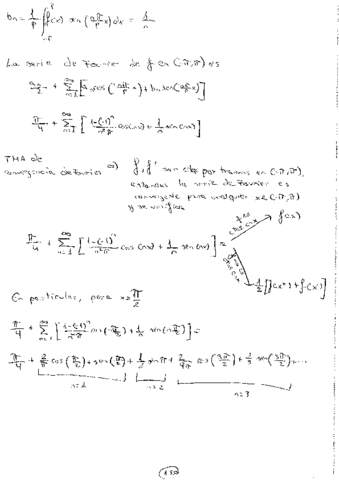 bn = 1/p ∫ f(x) sen (nπ/p x) dx = 1/n
La serie de Fourier de f en (-π,π) es
a₀/2 + Σ [an cos(nπ/p x) + bn sen(nπ/p x)]
π/4 + Σ [1-(-1)ⁿ/n²π cos(nx) + 1/n sen(nx)]
TMA de
convergencia de Fourier ⇒ f, f' son ctas por tramos en (-π,π),
entonces la serie de Fourier es
convergente para cualquier x∈(-π,π)
y se verifica
f(x)
π/4 + Σ [1-(-1)ⁿ/n²π cos(nx) + 1/n sen(nx)] =
1/2 [f(x⁺) + f(x⁻)]
En particular, para x=π/2
π/4 + Σ [1-(-1)ⁿ/n²π cos(nπ/2) + 1/n sen(nπ/2)] =
π/4 + 2/π cos(π/2) + sen(π/2) + 1/2 sen π + 2/9π cos(3π/2) + 1/3 sen(3π/2) + ...
n=1 n=2 n=3